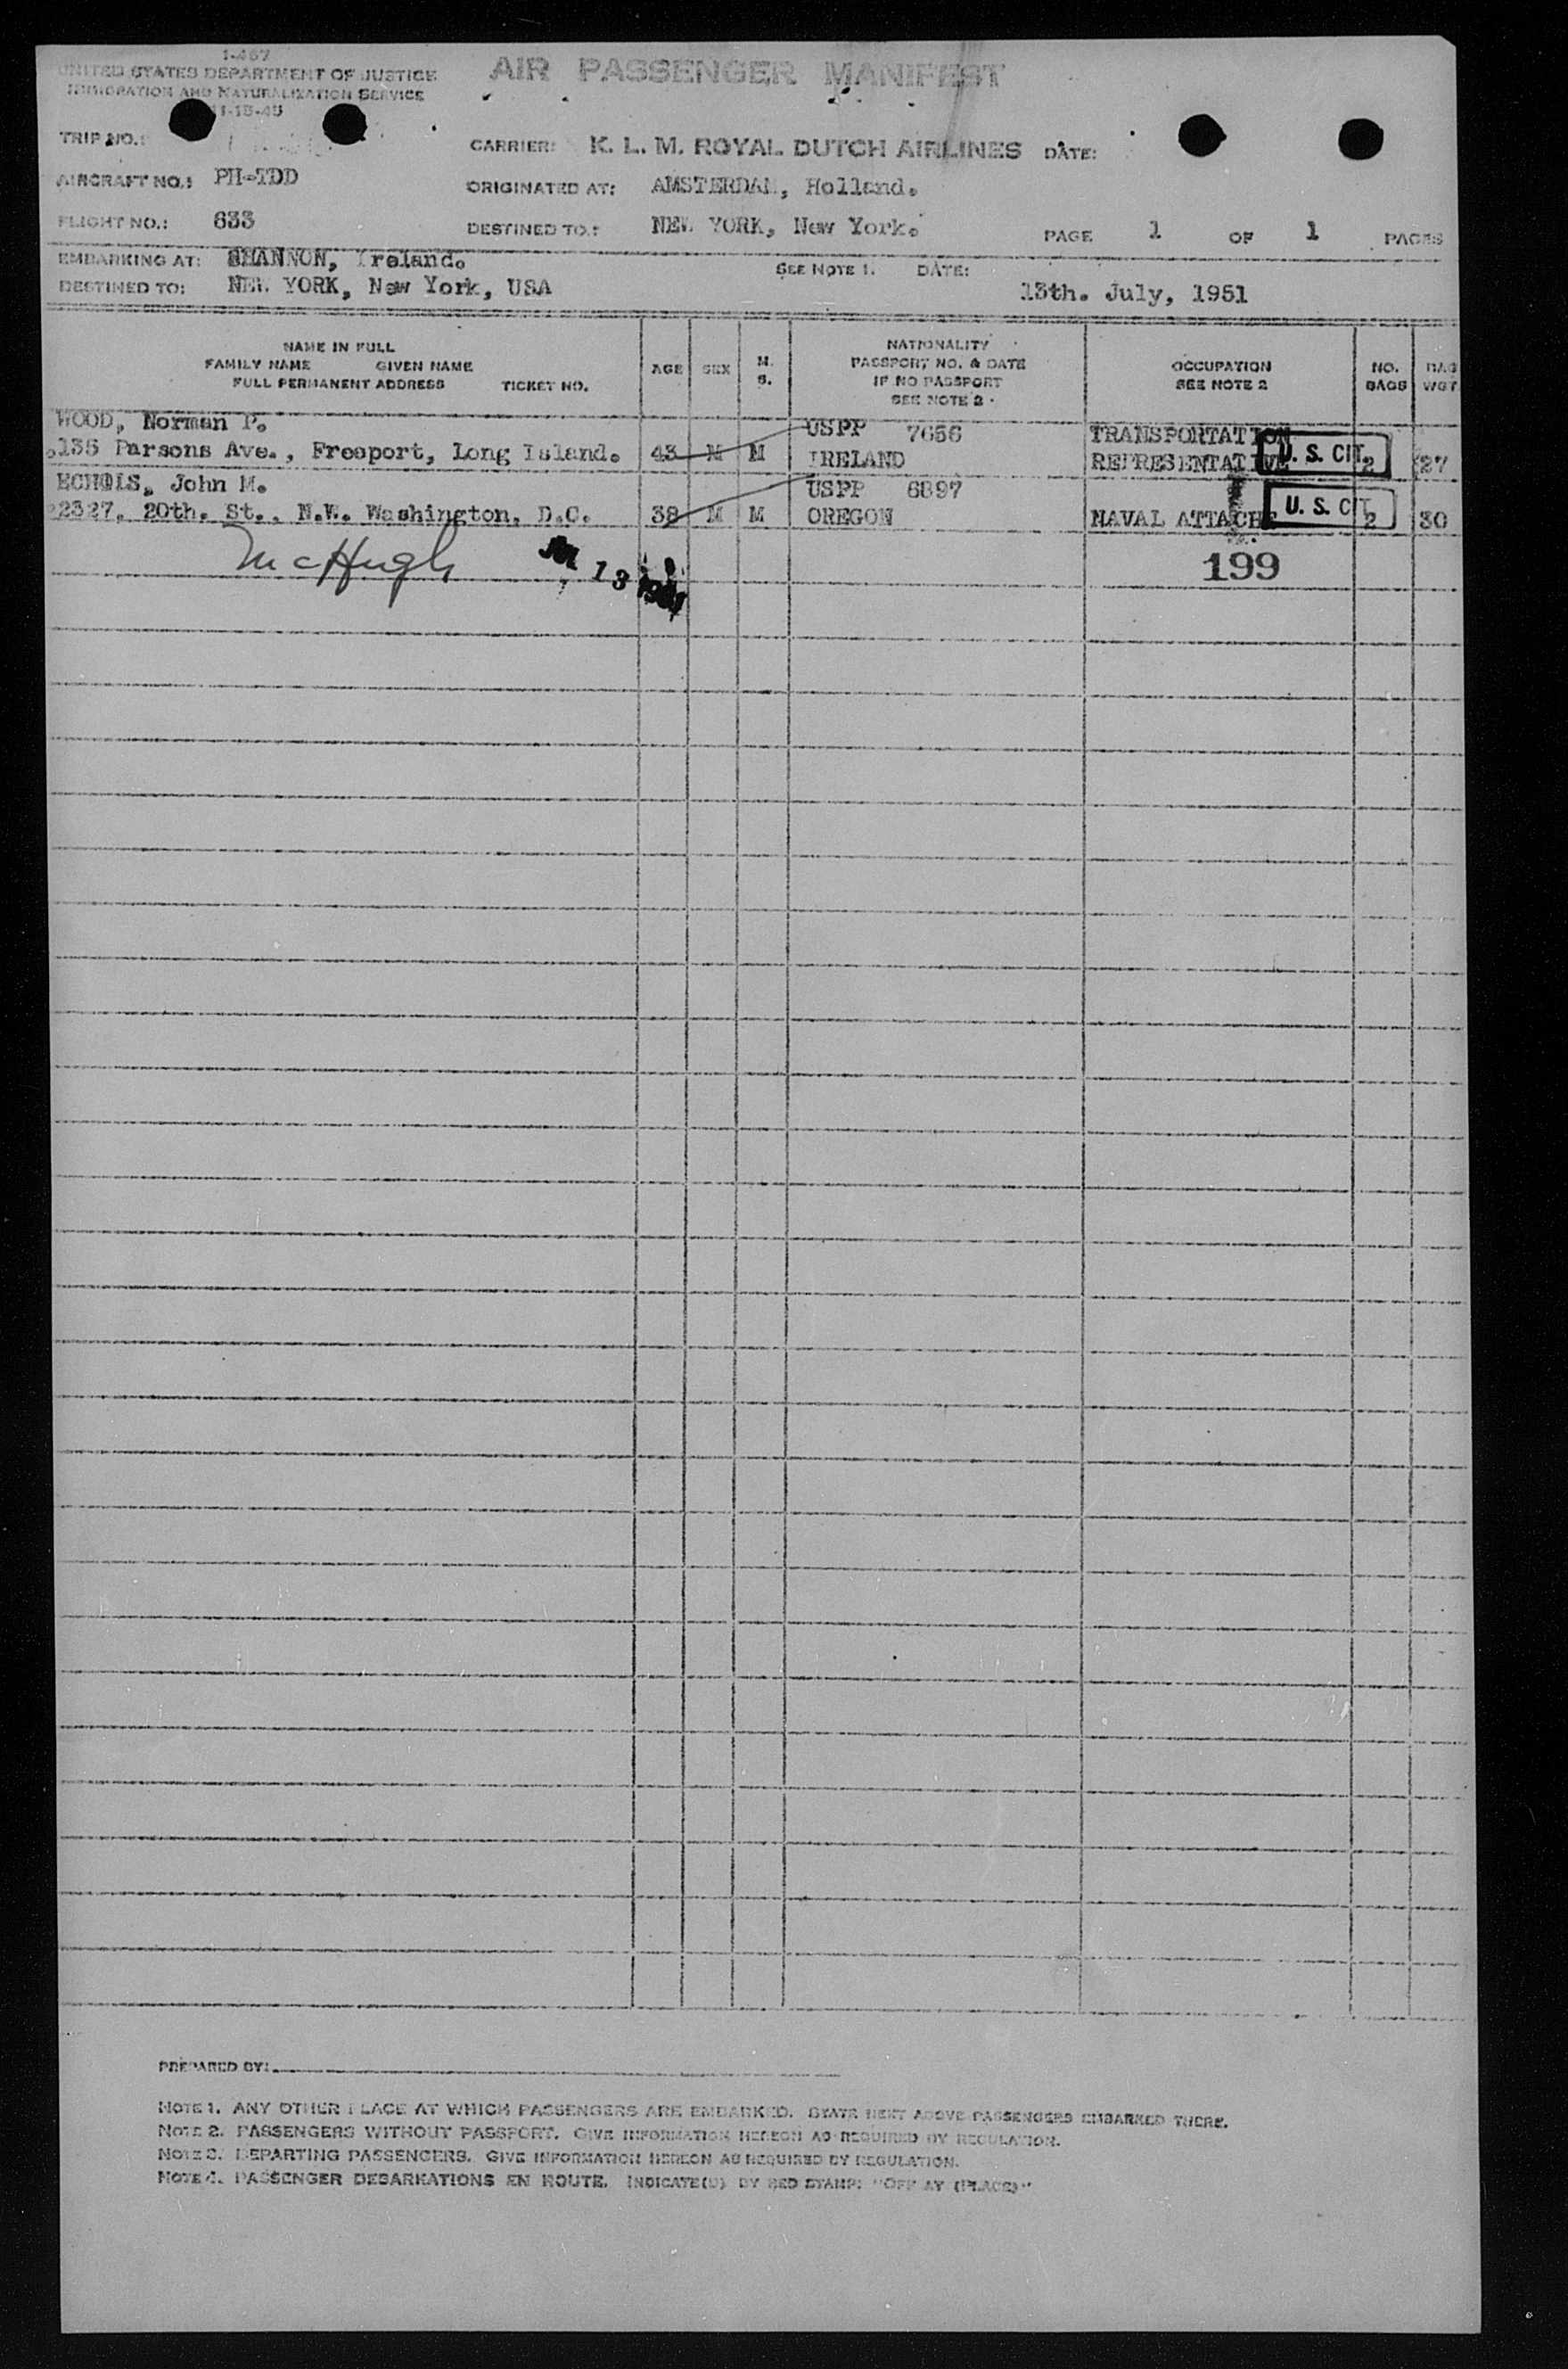 I-467
UNITED STATES DEPARTMENT OF JUSTICE
IMMIGRATION AND NATURALIZATION SERVICE
11-15-45
AIR PASSENGER MANIFEST
TRIP NO.:
CARRIER: K. L. M. ROYAL DUTCH AIRLINES DATE:
AIRCRAFT NO.: PH-TDD
ORIGINATED AT: AMSTERDAM, Holland.
FLIGHT NO.: 633
DESTINED TO.: NEW YORK, New York.
PAGE 1 OF 1 PAGES
EMBARKING AT: SHANNON, Ireland.
SEE NOTE 1. DATE:
DESTINED TO: NEW YORK, New York, USA
13th. July, 1951
NAME IN FULL
FAMILY NAME GIVEN NAME
FULL PERMANENT ADDRESS TICKET NO.
AGE
SEX
M.
S.
NATIONALITY
PASSPORT NO. & DATE
IF NO PASSPORT
SEE NOTE 2.
OCCUPATION
SEE NOTE 2
NO.
BAGS
BAG
WGT
WOOD, Norman P. USPP 7656 TRANSPORTATION
135 Parsons Ave., Freeport, Long Island. 43 M M IRELAND REPRESENTATIVE U. S. CIT. 2 27
ECHOLS, John M. USPP 6897
2327, 20th. St., N.W. Washington, D.C. 38 M M OREGON NAVAL ATTACHE U. S. CIT. 2 30
McHugh JUL 13 1951 199
PREPARED BY:
NOTE 1. ANY OTHER PLACE AT WHICH PASSENGERS ARE EMBARKED. STATE NEXT ABOVE PASSENGERS EMBARKED THERE.
NOTE 2. PASSENGERS WITHOUT PASSPORT. GIVE INFORMATION HEREON AS REQUIRED BY REGULATION.
NOTE 3. DEPARTING PASSENGERS. GIVE INFORMATION HEREON AS REQUIRED BY REGULATION.
NOTE 4. PASSENGER DEBARKATIONS EN ROUTE. INDICATE(D) BY RED STAMP: "OFF AT (PLACE)"